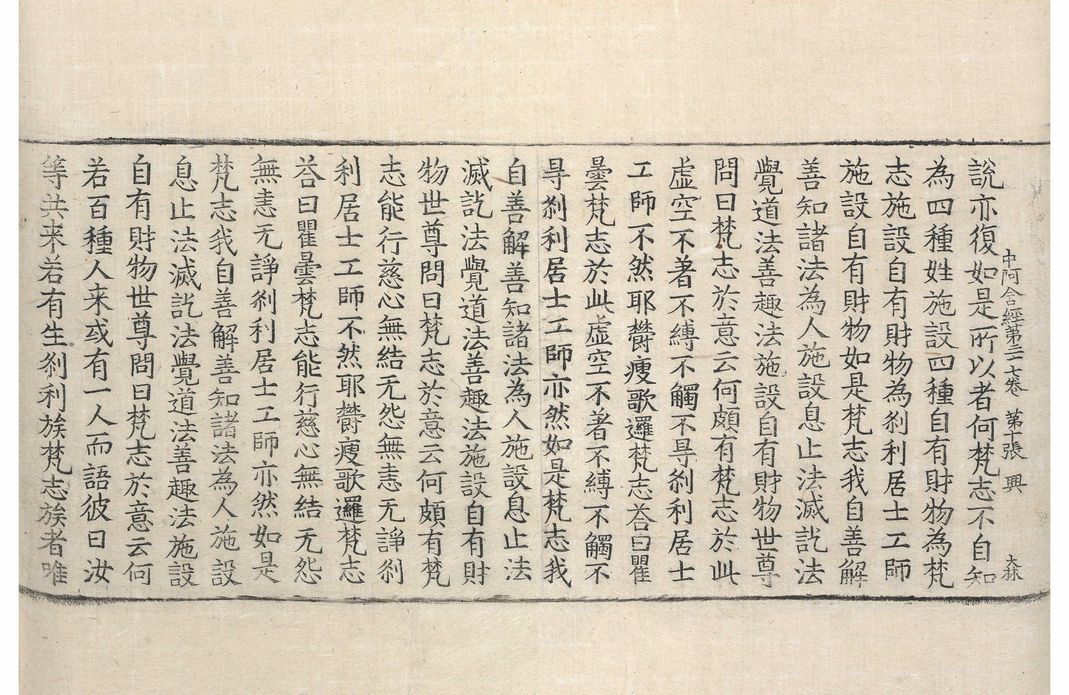 中阿含經第三十七卷 第十張 興
說亦復如是所以者何梵志不自知
為四種姓施設四種自有財物為梵
志施設自有財物為剎利居士工師
施設自有財物如是梵志我自善解
善知諸法為人施設息止法滅訖法
覺道法善趣法施設自有財物世尊
問曰梵志於意云何頗有梵志於此
虛空不著不縛不觸不㝵剎利居士
工師不然耶欝瘦歌邏梵志荅曰瞿
曇梵志於此虛空不著不縛不觸不
㝵剎利居士工師亦然如是梵志我
自善解善知諸法為人施設息止法
滅訖法覺道法善趣法施設自有財
物世尊問曰梵志於意云何頗有梵
志能行慈心無結无怨無恚无諍剎
利居士工師不然耶欝瘦歌邏梵志
荅曰瞿曇梵志能行慈心無結无怨
無恚无諍剎利居士工師亦然如是
梵志我自善解善知諸法為人施設
息止法滅訖法覺道法善趣法施設
自有財物世尊問曰梵志於意云何
若百種人来或有一人而語彼曰汝
等共来若有生剎利族梵志族者唯